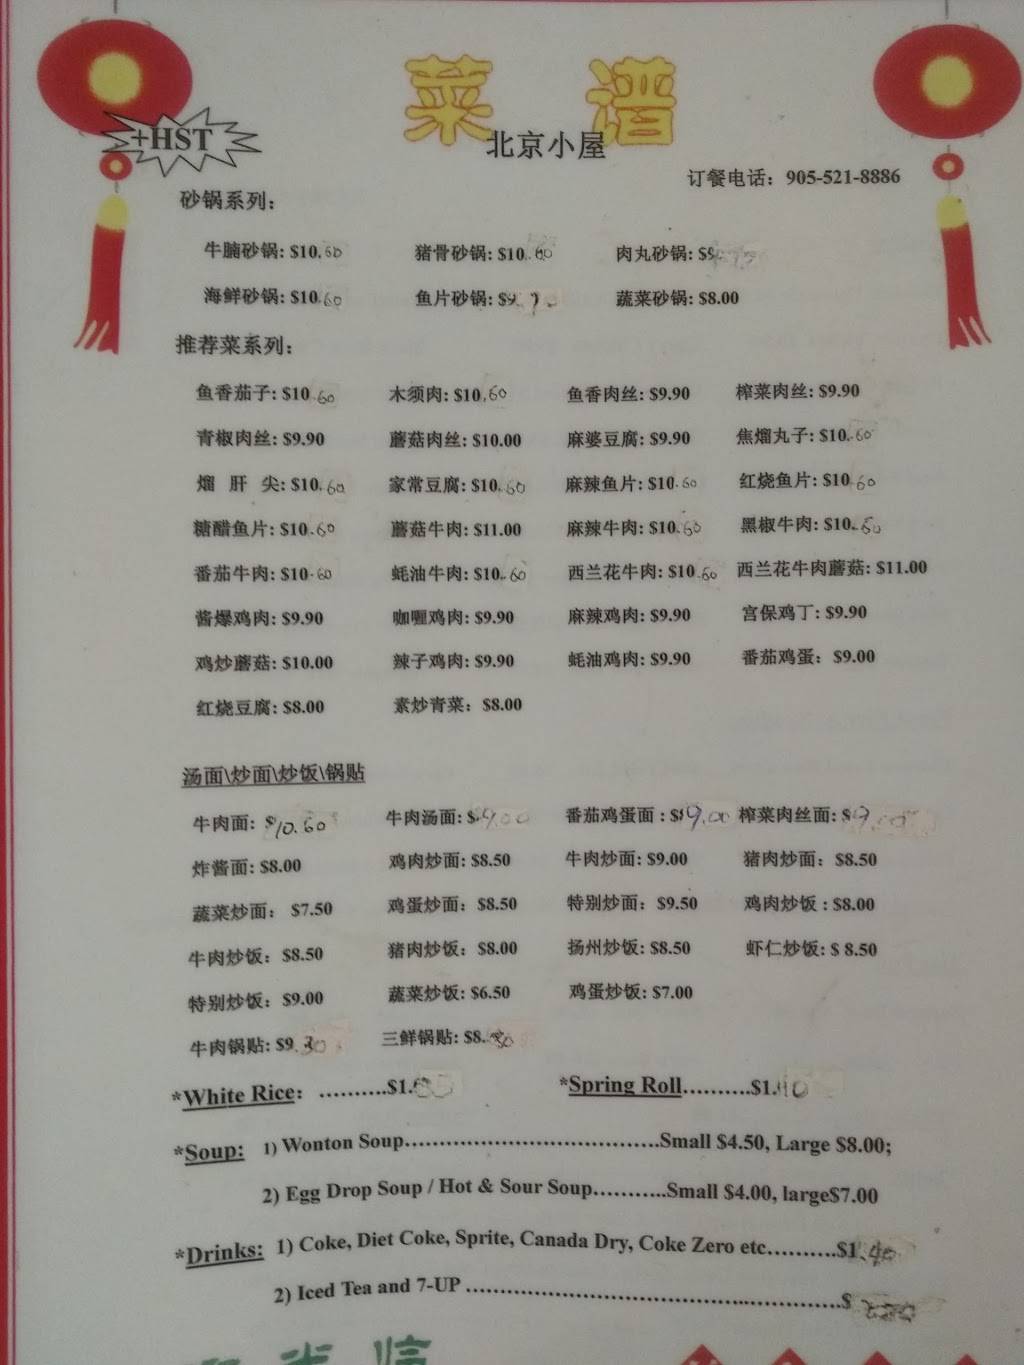 菜谱
+HST
北京小屋
订餐电话：905-521-8886
砂锅系列：
牛腩砂锅: $10.60 猪骨砂锅: $10.60 肉丸砂锅: $9.
海鲜砂锅: $10.60 鱼片砂锅: $9. 蔬菜砂锅: $8.00
推荐菜系列：
鱼香茄子: $10.60 木须肉: $10.60 鱼香肉丝: $9.90 榨菜肉丝: $9.90
青椒肉丝: $9.90 蘑菇肉丝: $10.00 麻婆豆腐: $9.90 焦熘丸子: $10.60
熘 肝 尖: $10.60 家常豆腐: $10.60 麻辣鱼片: $10.60 红烧鱼片: $10.60
糖醋鱼片: $10.60 蘑菇牛肉: $11.00 麻辣牛肉: $10.60 黑椒牛肉: $10.60
番茄牛肉: $10.60 蚝油牛肉: $10.60 西兰花牛肉: $10.60 西兰花牛肉蘑菇: $11.00
酱爆鸡肉: $9.90 咖喱鸡肉: $9.90 麻辣鸡肉: $9.90 宫保鸡丁: $9.90
鸡炒蘑菇: $10.00 辣子鸡肉: $9.90 蚝油鸡肉: $9.90 番茄鸡蛋：$9.00
红烧豆腐: $8.00 素炒青菜：$8.00
汤面\炒面\炒饭\锅贴
牛肉面: $10.60 牛肉汤面: $9.00 番茄鸡蛋面 : $9.00 榨菜肉丝面: $9.00
炸酱面: $8.00 鸡肉炒面: $8.50 牛肉炒面: $9.00 猪肉炒面：$8.50
蔬菜炒面： $7.50 鸡蛋炒面：$8.50 特别炒面：$9.50 鸡肉炒饭 : $8.00
牛肉炒饭：$8.50 猪肉炒饭：$8.00 扬州炒饭: $8.50 虾仁炒饭: $ 8.50
特别炒饭：$9.00 蔬菜炒饭: $6.50 鸡蛋炒饭: $7.00
牛肉锅贴: $9.30 三鲜锅贴: $8.
*White Rice： ..........$1. *Spring Roll..........$1.40
*Soup: 1) Wonton Soup......................................Small $4.50, Large $8.00;
2) Egg Drop Soup / Hot & Sour Soup...........Small $4.00, large$7.00
*Drinks: 1) Coke, Diet Coke, Sprite, Canada Dry, Coke Zero etc..........$1.40
2) Iced Tea and 7-UP ........................................................$